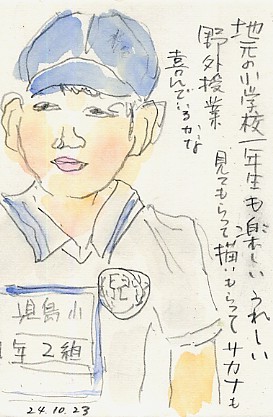 地元の小学校一年生も楽しい うれしい
見てもらって描いもらって サカナも
野外授業
喜んでいるかな
児
児島小
1年2組
24.10.23